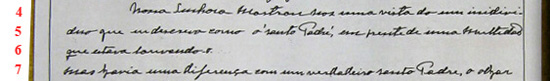 4 Nossa Senhora Mostrou nos uma vista do um individ
5 duo que indescreva como o santo Padre, em frente de uma multidão
6 que estava louvando-o.
7 mas havia uma diferença com um verdadeiro santo Padre, o olhar